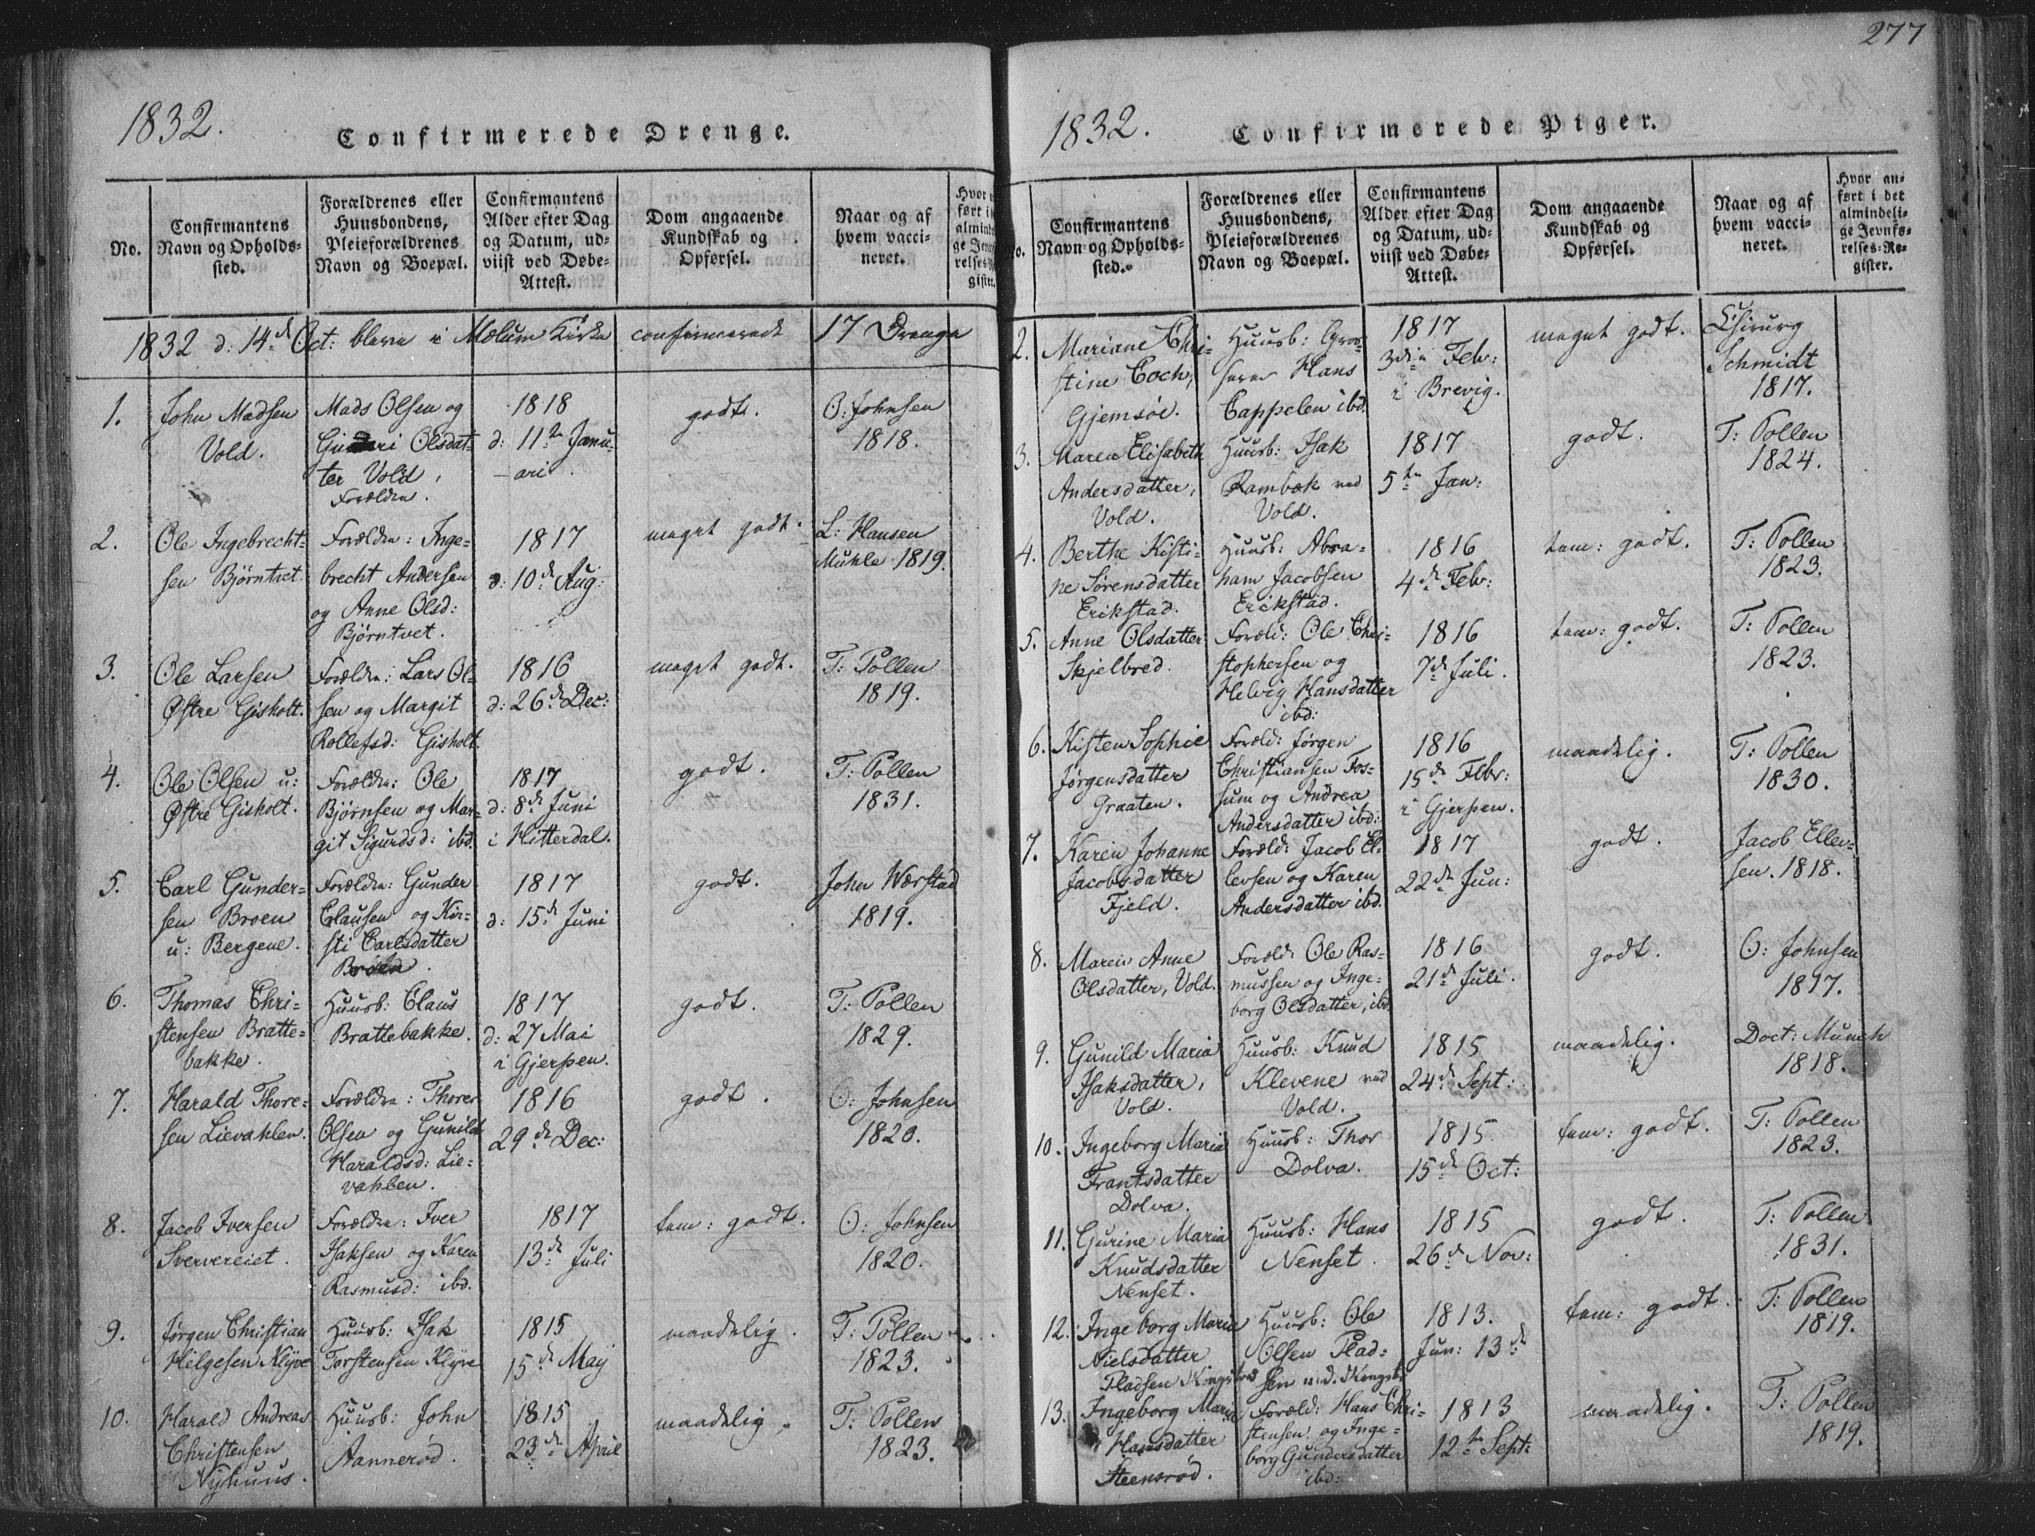 277
1832.
Confirmerede Drenge.
No.
Confirmantens
Navn og Opholds-
sted.
Forældrenes eller
Huusbondens,
Pleieforældrenes
Navn og Boepæl.
Confirmantens
Alder efter Dag
og Datum, ud-
viist ved Døbe-
Attest.
Dom angaaende
Kundskab og
Opførsel.
Naar og af
hvem vacci-
neret.
1832 d: 14de Oct: bleve i Mælum Kirke confirmerede 17 Drenge
1.
John Madsen
Vold.
Mads Olsen og
Olsdat-
ter Vold,
Forældre.
1818
d: 11te Janu-
ari.
godt.
O: Johnsen
1818.
2.
Ole Ingebrecht-
sen Bjørntvet
Forældre: Inge-
brecht Andersen
og Anne Olsd:
Bjørntvet.
1817
d: 10de Aug:
meget godt.
L: Hansen
Muhle 1819.
3.
Ole Larsen
Østre Gisholt.
Forældre: Lars Ol-
sen og Margit
Rollefsd: Gisholt.
1816
d: 26de Dec:
meget godt.
T: Pollen
1819.
4.
Ole Olsen u:
Østre Gisholt.
Forældre: Ole
Bjørnsen og Mar-
git Sigurdsd: ibd.
1817
d: 8de Juni
i Hitterdal.
godt.
T: Pollen
1831.
5.
Carl Gunder-
sen Broen
u: Bergene.
Forældre: Gunder
Clausen og Kir-
sti Carlsdatter
Broen.
1817
d: 15de Juni
godt.
John Wærstad
1819.
6.
Thomas Chri-
stensen Bratte-
bakke.
Huusb: Claus
Brattebakke.
1817
d: 27 Mai
i Gjerpen.
godt.
T: Pollen
1829.
7.
Harald Thore-
sen Lievahlen.
Forældre: Thorer
Olsen og Gunild
Haraldsd: Lie-
vahlen.
1816
29de Dec:
godt.
O: Johnsen
1820.
8.
Jacob Iversen
Sververeiet.
Forældre: Iver
Isaksen og Karen
Rasmusd: ibd.
1817
13de Juli
tem: godt.
O: Johnsen
1820.
9.
Jørgen Christian
Helgesen Klyve
Huusb: Isak
Torstensen Klyve
1815
15de Maj
maadelig.
T: Pollen
1823.
10.
Harald Andreas
Christensen
Nyhuus.
Huusb: John
Aannerød.
1815
23de April
maadelig.
T: Pollen
1823.
1832.
Confirmerede Piger.
No.
Confirmantens
Navn og Opholds-
sted.
Forældrenes eller
Huusbondens,
Pleieforældrenes
Navn og Boepæl.
Confirmantens
Alder efter Dag
og Datum, ud-
viist ved Døbe-
Attest.
Dom angaaende
Kundskab og
Opførsel.
Naar og af
hvem vacci-
neret.
Hvor an-
ført i det
almindeli-
ge Jevnfø-
relses-Re-
gister.
2.
Mariane Chri-
stine Coch,
Gjemsøe.
Huusb: Gros-
serer Hans
Cappelen ibd.
1817
3die Feb:
i Brevig.
meget godt.
Chirurg
Schmidt
1817.
3.
Maren Elisabeth
Andersdatter,
Vold.
Huusb: Isak
Rambæk ved
Vold.
1817
5te Jan:
godt.
T: Pollen
1824.
4.
Berthe Kisti-
ne Sørensdatter
Erikstad.
Huusb: Abra-
ham Jacobsen
Erikstad.
1816
4de Feb:
tem: godt.
T: Pollen
1823.
5.
Anne Olsdatter
Skjelbred.
Foræld: Ole Chri-
stophersen og
Helvig Hansdatter
ibd:
1816
7de Juli.
tem: godt.
T: Pollen
1823.
6.
Kisten Sophie
Jørgensdatter
Graaten.
Foræld: Jørgen
Christiansen Fos-
sum og Andrea
Andersdatter ibd:
1816
15de Febr:
i Gjerpen.
maadelig.
T: Pollen
1830.
7.
Karen Johanne
Jacobsdatter
Fjeld.
Foræld: Jacob El-
levsen og Karen
Andersdatter ibd.
1817
22de Jun:
godt.
Jacob Ellev-
sen. 1818.
8.
Maren Anne
Olsdatter, Vold.
Foræld: Ole Ras-
mussen og Inge-
borg Olsdatter, ibd.
1816
21de Juli.
godt.
O: Johnsen
1817.
9.
Gunild Maria
Isaksdatter,
Vold.
Huusb: Knud
Klevene ved
Vold.
1815
24de Sept:
maadelig.
Doct: Munch
1818.
10.
Ingeborg Maria
Frantsdatter
Dolva.
Huusb: Thor
Dolva.
1815.
15de Oct:
tem: godt.
T: Pollen
1823.
11.
Gurine Maria
Knudsdatter
Nenset.
Huusb: Hans
Nenset.
1815
26de Nov:
godt.
T: Pollen
1831.
12.
Ingeborg Maria
Nielsdatter
Fladsen
Huusb: Ole
Olsen Flad-
sen
1813.
Jun: 13de
tem: godt.
T: Pollen
1819.
13.
Ingeborg Marie
Hansdatter
Steensrød.
Foræld: Hans Chri-
stensen og Inge-
borg Gundersdatter
ibd:
1813
12te Sept:
maadelig.
T: Pollen
1819.